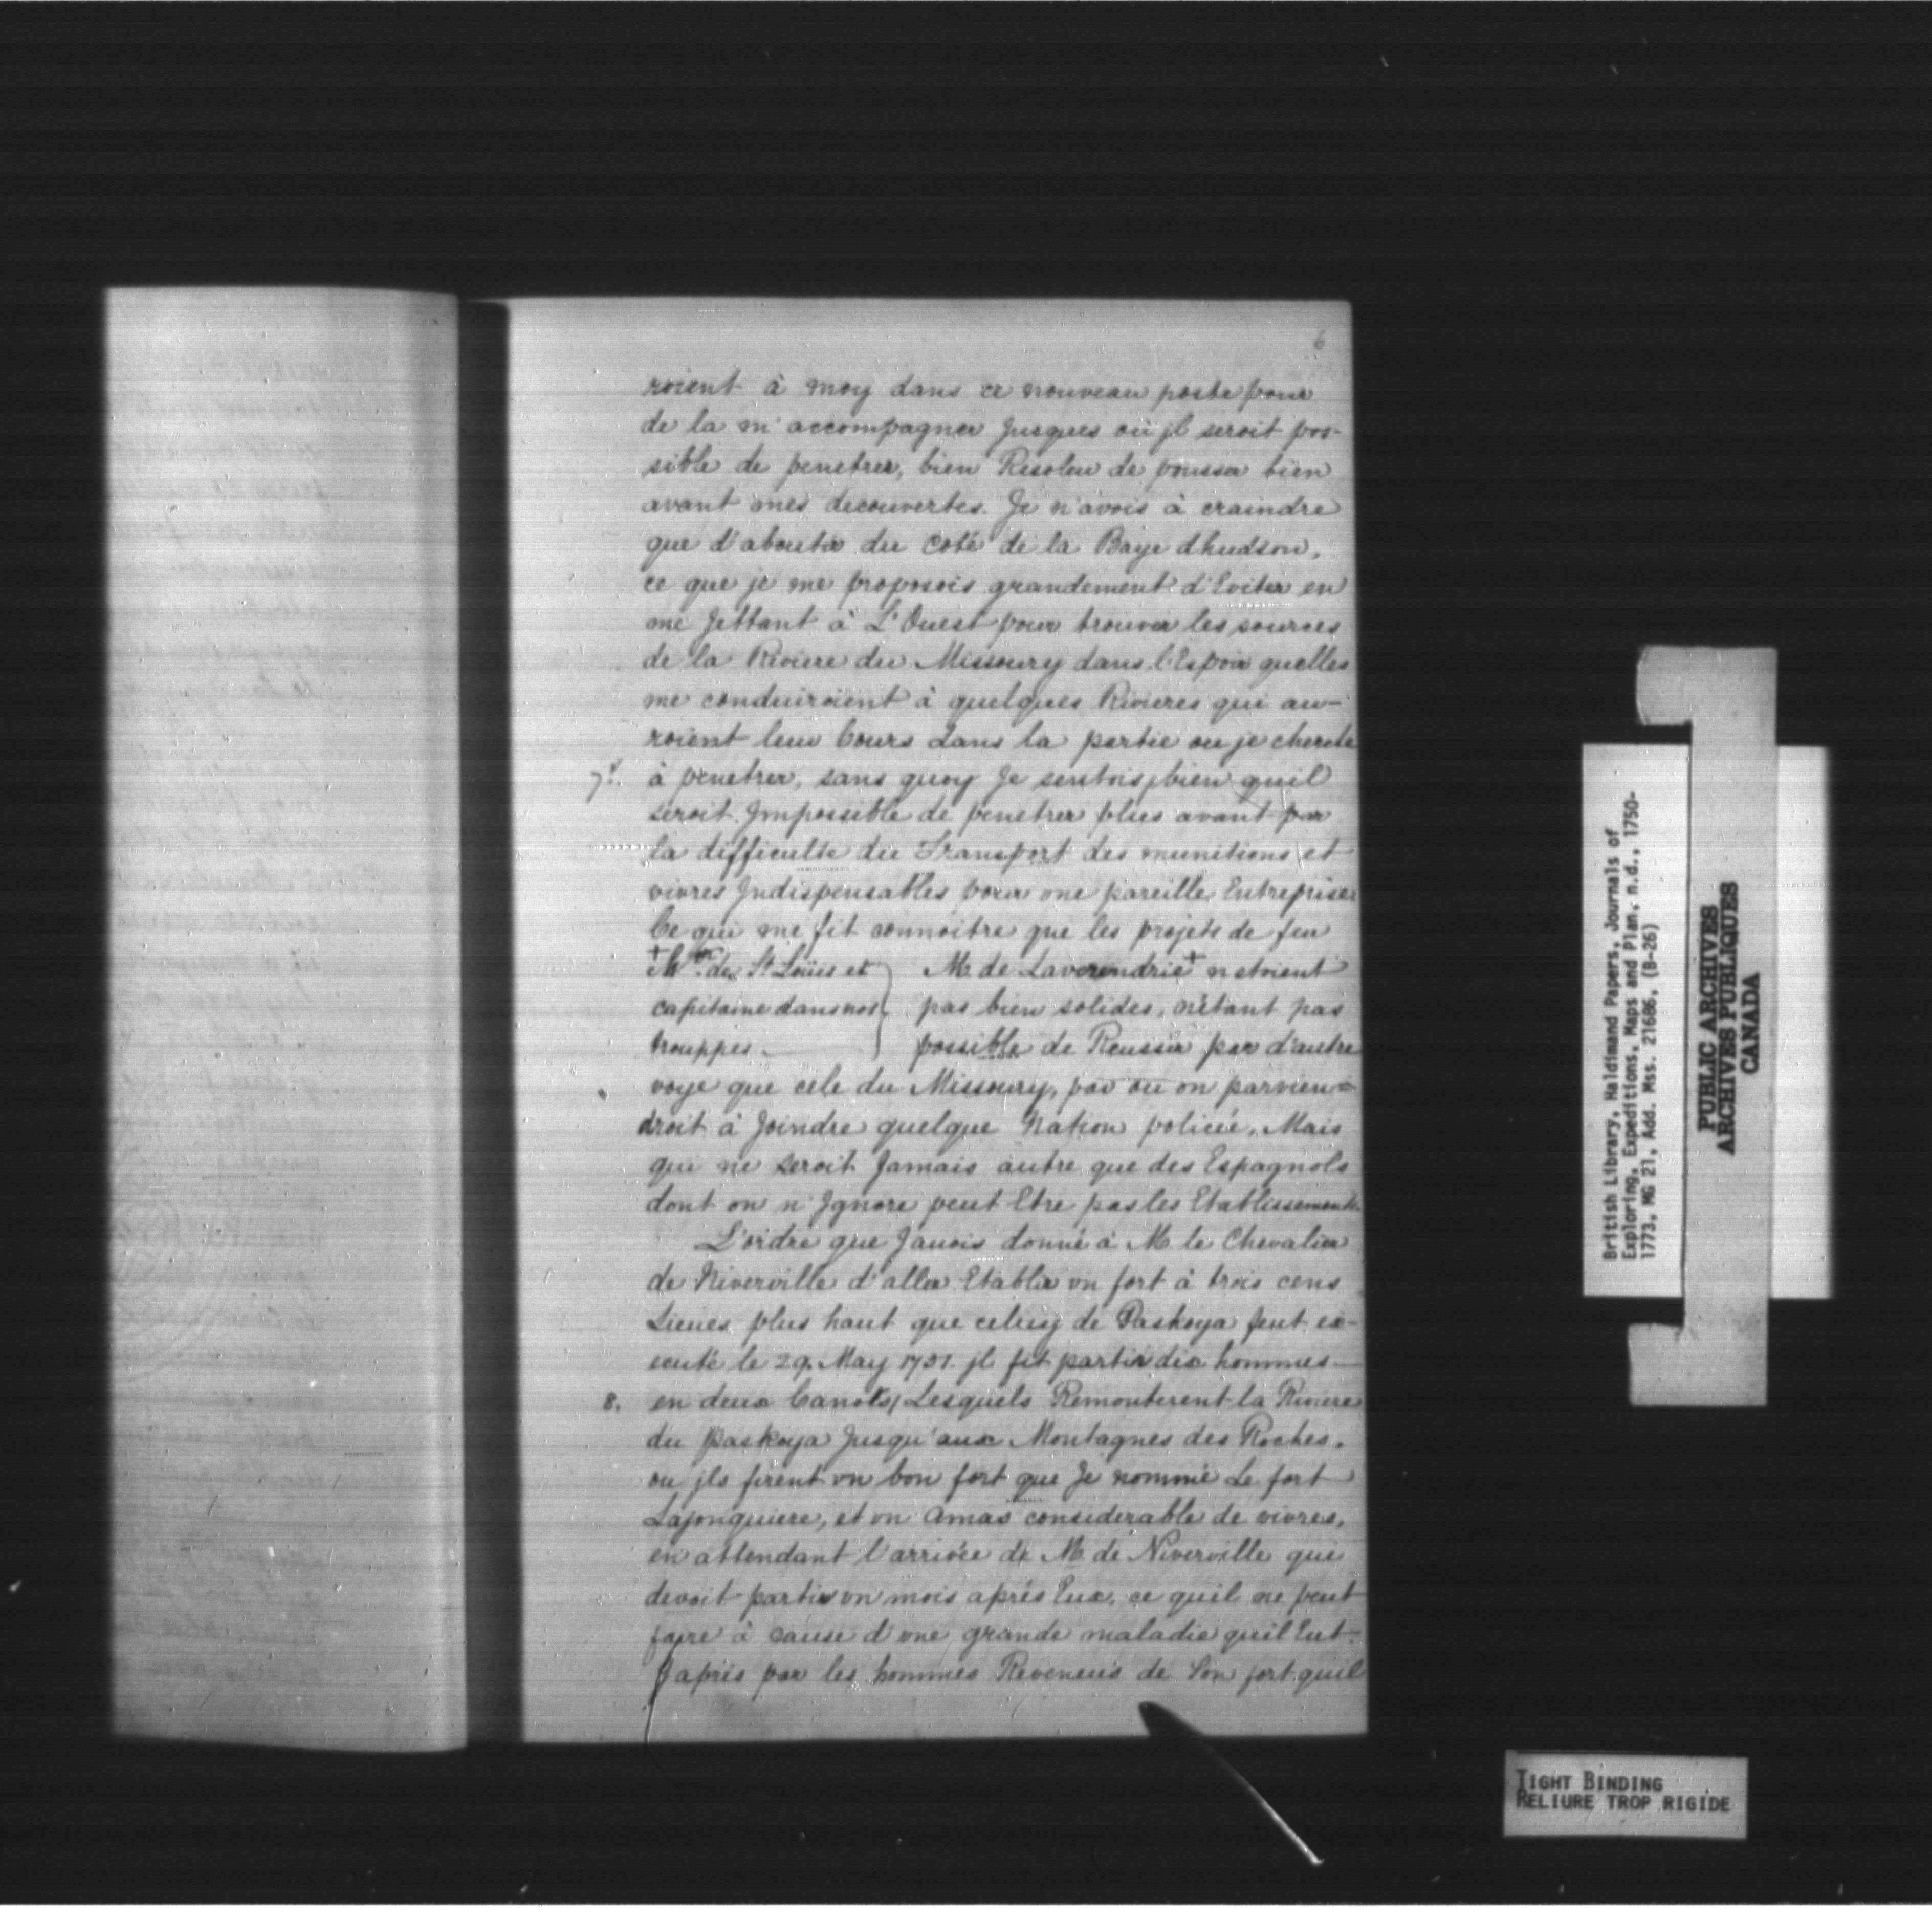 6
roient à moy dans ce nouveau poste pour
de la m'accompagner Jusques où jl seroit pos-
sible de penetrer, bien Resolu de pousser bien
avant mes decouvertes. Je n'avois à craindre
que d'aboutir du coté de la Baye dhudson,
ce que je me proposois grandement d'Eviter en
me Jettant à L'Ouest pour trouver les sources
de la Riviere du Missoury dans l'Espoir quelles
me conduiroient à quelques Rivieres qui au-
roient leur Cours dans la partie ou je cherche
7. à penetrer, sans quoy Je sentois bien quil
seroit Jmpossible de penetrer plus avant par
la difficulte du Transport des munitions et
vivres Jndispensables pour une pareille Entreprise
Ce qui me fit connoitre que les projets de feu
+ Ch.er de St Loüis et } M. de Laverendrie + netoient
capitaine dans nos } pas bien solides, nétant pas
trouppes. } possible de Reussir par d'autre
voye que cele du Missoury, par ou on parvien=
droit à Joindre quelque Nation policée, Mais
qui ne seroit Jamais autre que des Espagnols
dont on n'Jgnore peut Etre pas les Etablissements.
L'ordre que Javois donné à M. le Chevalier
de Niverville d'aller Etablir un fort à trois cens
Lieues plus haut que celuy de Paskoya feut ex-
ecuté le 29. May 1751. jl fit partir dix hommes
8. en deux Canots, Lesquels Remonterent la Riviere
du Paskoya Jusqu'aux Montagnes des Roches,
ou jls firent un bon fort que Je nommé Le fort
Lajonquiere, et un Amas considerable de vivres,
en attendant l'arrivée de M. de Niverville qui
devoit partir un mois aprés Eux, ce quil ne peut
faire à cause d'une grande maladie quil Eut.
Japris par les hommes Revenus de Son fort, quil
British Library, Haldimand Papers, Journals of
Exploring, Expeditions, Maps and Plan, n.d., 1750-
1773, MG 21, Add. Mss. 21686, (B-26)
PUBLIC ARCHIVES
ARCHIVES PUBLIQUES
CANADA
TIGHT BINDING
RELIURE TROP RIGIDE